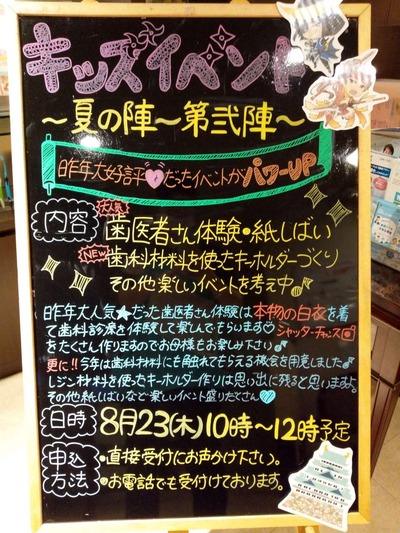 キッズイベント
～夏の陣～第弐陣～
昨年大好評♥だったイベントがパワーUP
内容
大人気
歯医者さん体験・紙しばい
NEW
歯科材料を使ったキーホルダーづくり
その他楽しいイベントを考え中♪
昨年大人気★だった歯医者さん体験は本物の白衣を着
て歯科診療を体験して楽しんでもらいます♡シャッターチャンス
をたくさん作りますのでお母様もお楽しみ下さい♪
更に!!今年は歯科材料にも触れてもらえる機会を用意しました♪
レジン材料を使ったキーホルダー作りは思い出に残ると思いますよ。
その他紙しばいなど楽しいイベント盛りだくさん♥
日時
8月23(木)10時～12時予定
申込方法
・直接受付にお声かけ下さい。
・お電話でも受付ております。